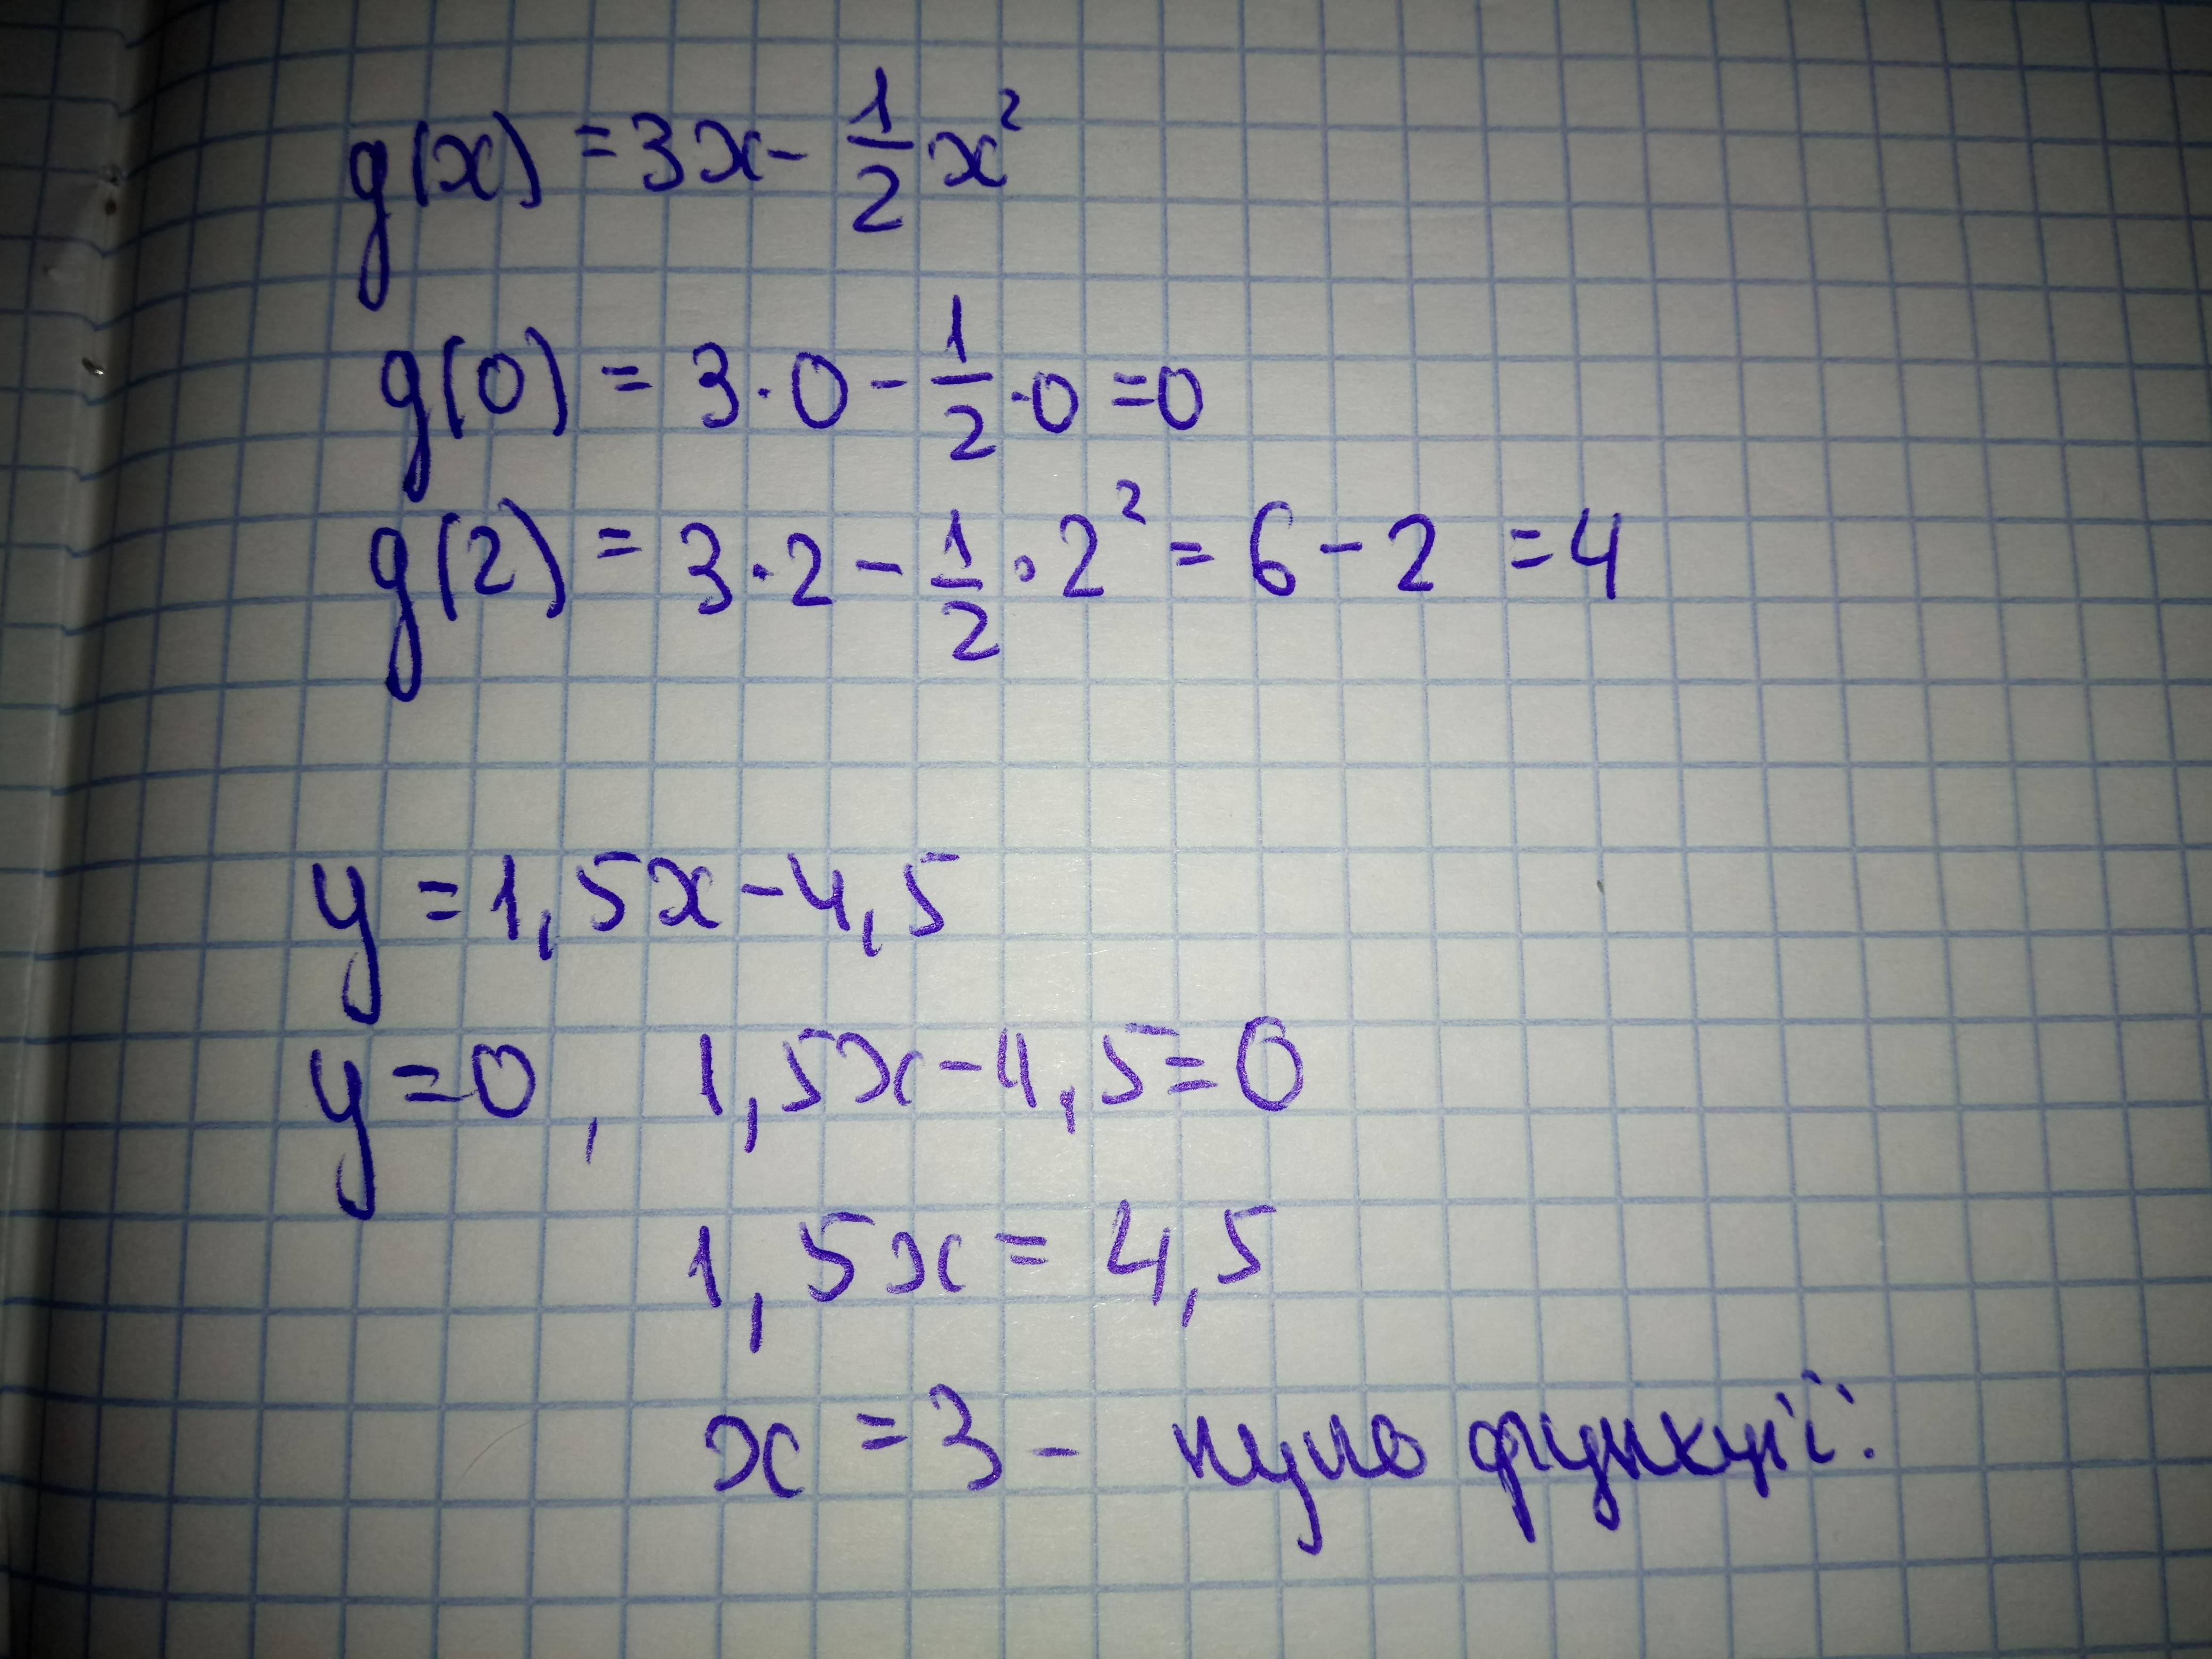 g(x) = 3x - 1/2 x²
g(0) = 3·0 - 1/2 ·0 = 0
g(2) = 3·2 - 1/2 · 2² = 6 - 2 = 4
y = 1,5x - 4,5
y = 0, 1,5x - 4,5 = 0
1,5x = 4,5
x = 3 - нуль функції.